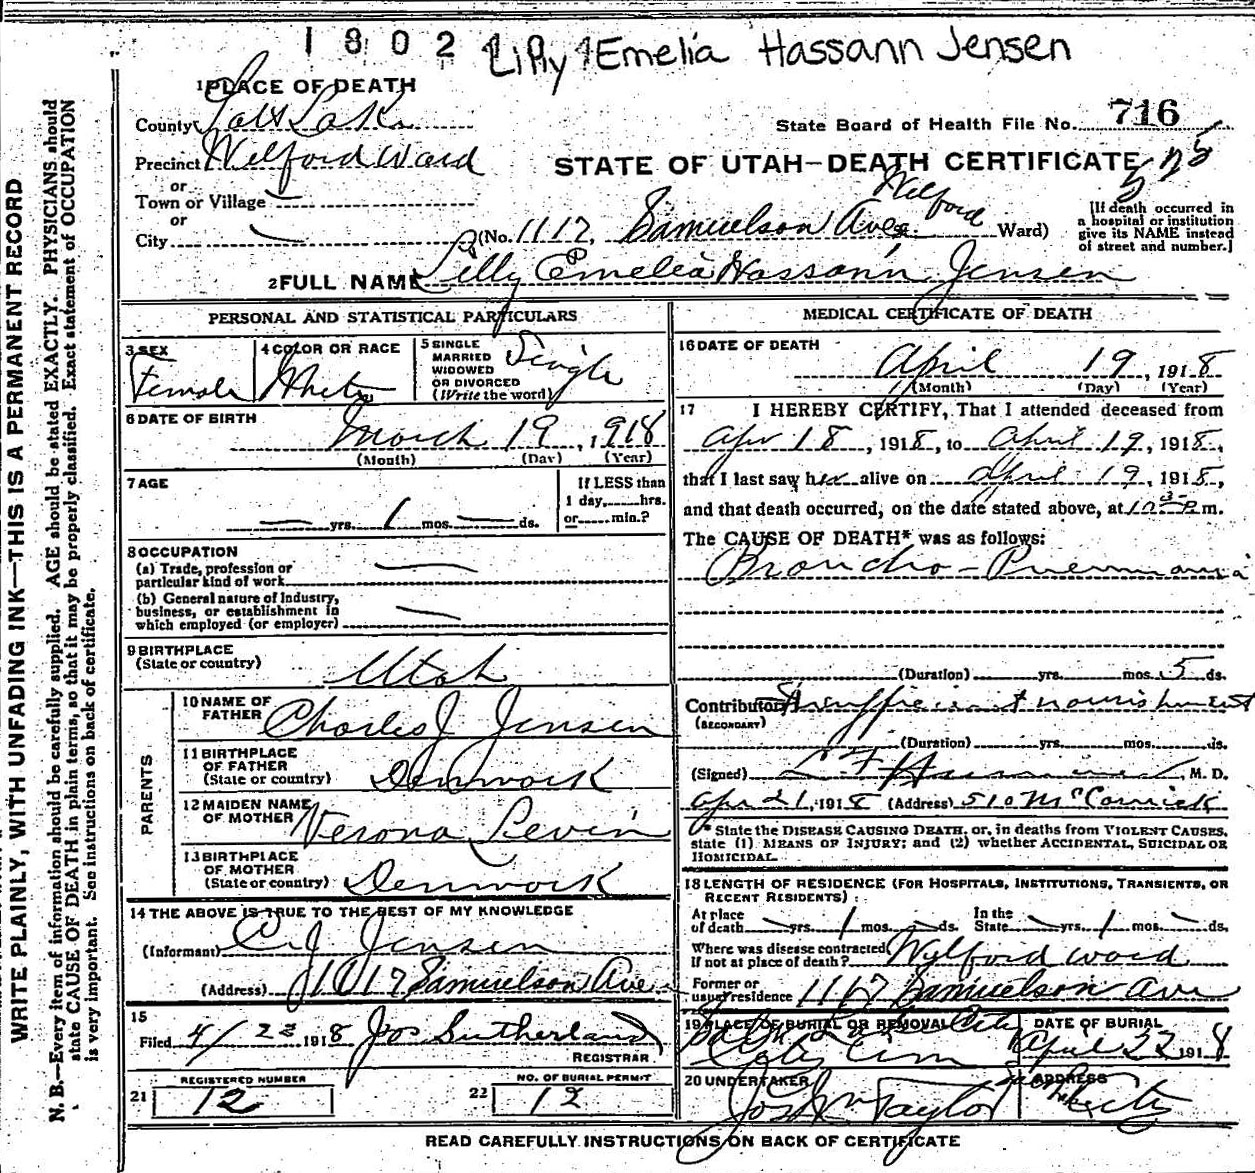 1802 Lilly Emelia Hassann Jensen
1 PLACE OF DEATH
County Salt Lake
State Board of Health File No. 716
Precinct Wilford Ward
STATE OF UTAH—DEATH CERTIFICATE
or
Town or Village —
or
City — (No. 1117, Samuelson Ave. Wilford Ward)
[If death occurred in a hospital or institution give its NAME instead of street and number.]
2 FULL NAME Lilly Emelia Hassann Jensen
PERSONAL AND STATISTICAL PARTICULARS
3 SEX Female
4 COLOR OR RACE White
5 SINGLE MARRIED WIDOWED OR DIVORCED (Write the word) Single
6 DATE OF BIRTH
March 19, 1918
(Month) (Day) (Year)
7 AGE
— yrs. 1 mos. — ds.
If LESS than 1 day, hrs. or min.?
8 OCCUPATION
(a) Trade, profession or particular kind of work —
(b) General nature of Industry, business, or establishment in which employed (or employer) —
9 BIRTHPLACE
(State or country) Utah
PARENTS
10 NAME OF FATHER Charles J Jensen
11 BIRTHPLACE OF FATHER (State or country) Denmark
12 MAIDEN NAME OF MOTHER Verona Levin
13 BIRTHPLACE OF MOTHER (State or country) Denmark
14 THE ABOVE IS TRUE TO THE BEST OF MY KNOWLEDGE
(Informant) C J Jensen
(Address) 1117 Samuelson Ave
15
Filed 4/22 1918 Jos Sutherland
REGISTRAR.
REGISTERED NUMBER
21 12
NO. OF BURIAL PERMIT
22 12
MEDICAL CERTIFICATE OF DEATH
16 DATE OF DEATH
April 19, 1918
(Month) (Day) (Year)
17 I HEREBY CERTIFY, That I attended deceased from
Apr 18, 1918, to April 19, 1918,
that I last saw her alive on April 19, 1918,
and that death occurred, on the date stated above, at P.m.
The CAUSE OF DEATH* was as follows:
Broncho-Pneumonia
(Duration) yrs. mos. 5 ds.
Contributory Insufficient nourishment
(SECONDARY)
(Duration) yrs. mos. ds.
(Signed) M. D.
Apr 21, 1918 (Address) 510 McCornick
* State the DISEASE CAUSING DEATH, or, in deaths from VIOLENT CAUSES, state (1) MEANS OF INJURY; and (2) whether ACCIDENTAL, SUICIDAL OR HOMICIDAL.
18 LENGTH OF RESIDENCE (FOR HOSPITALS, INSTITUTIONS, TRANSIENTS, OR RECENT RESIDENTS):
At place of death — yrs. 1 mos. — ds. In the State — yrs. 1 mos. — ds.
Where was disease contracted if not at place of death? Wilford ward
Former or usual residence 1117 Samuelson Ave
19 PLACE OF BURIAL OR REMOVAL City Cem
DATE OF BURIAL
April 22 1918
20 UNDERTAKER
Jos Wm Taylor
ADDRESS
City
READ CAREFULLY INSTRUCTIONS ON BACK OF CERTIFICATE
WRITE PLAINLY, WITH UNFADING INK—THIS IS A PERMANENT RECORD
N. B.—Every item of information should be carefully supplied. AGE should be stated EXACTLY. PHYSICIANS should
state CAUSE OF DEATH in plain terms, so that it may be properly classified. Exact statement of OCCUPATION
is very important. See instructions on back of certificate.